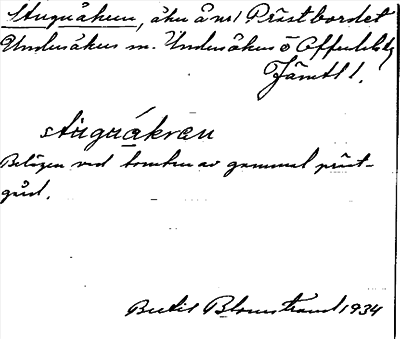 Stuguåkern, åker å nr 1 Prästbordet
Undersåkers sn. Undersåkers o Offerdals tg
Jämtl l.
stùguákræn
Belägen vid tomten av gammal präst-
gård.
Bertil Blomstrand 1934